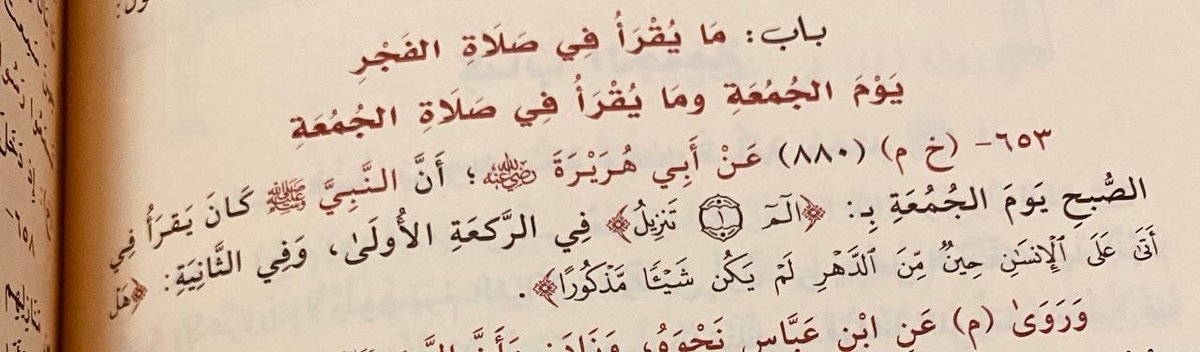 باب: مَا يُقْرَأُ فِي صَلَاةِ الفَجْرِ
يَوْمَ الجُمُعَةِ ومَا يُقْرَأُ فِي صَلَاةِ الجُمُعَةِ
٦٥٣- (خ م) (٨٨٠) عَنْ أَبِي هُرَيْرَةَ رضي الله عنه؛ أَنَّ النَّبِيَّ ﷺ كَانَ يَقرَأُ فِي
الصُّبحِ يَومَ الجُمُعَةِ بِـ: ﴿الٓمٓ ۝١ تَنزِيلُ﴾ فِي الرَّكعَةِ الأُولَىٰ، وَفِي الثَّانِيَةِ: ﴿هَلۡ
أَتَىٰ عَلَى ٱلۡإِنسَٰنِ حِينٞ مِّنَ ٱلدَّهۡرِ لَمۡ يَكُن شَيۡـٔٗا مَّذۡكُورًا﴾.
وَرَوَىٰ (م) عَنِ ابْنِ عَبَّاسٍ نَحْوَهُ، وَزَادَ: